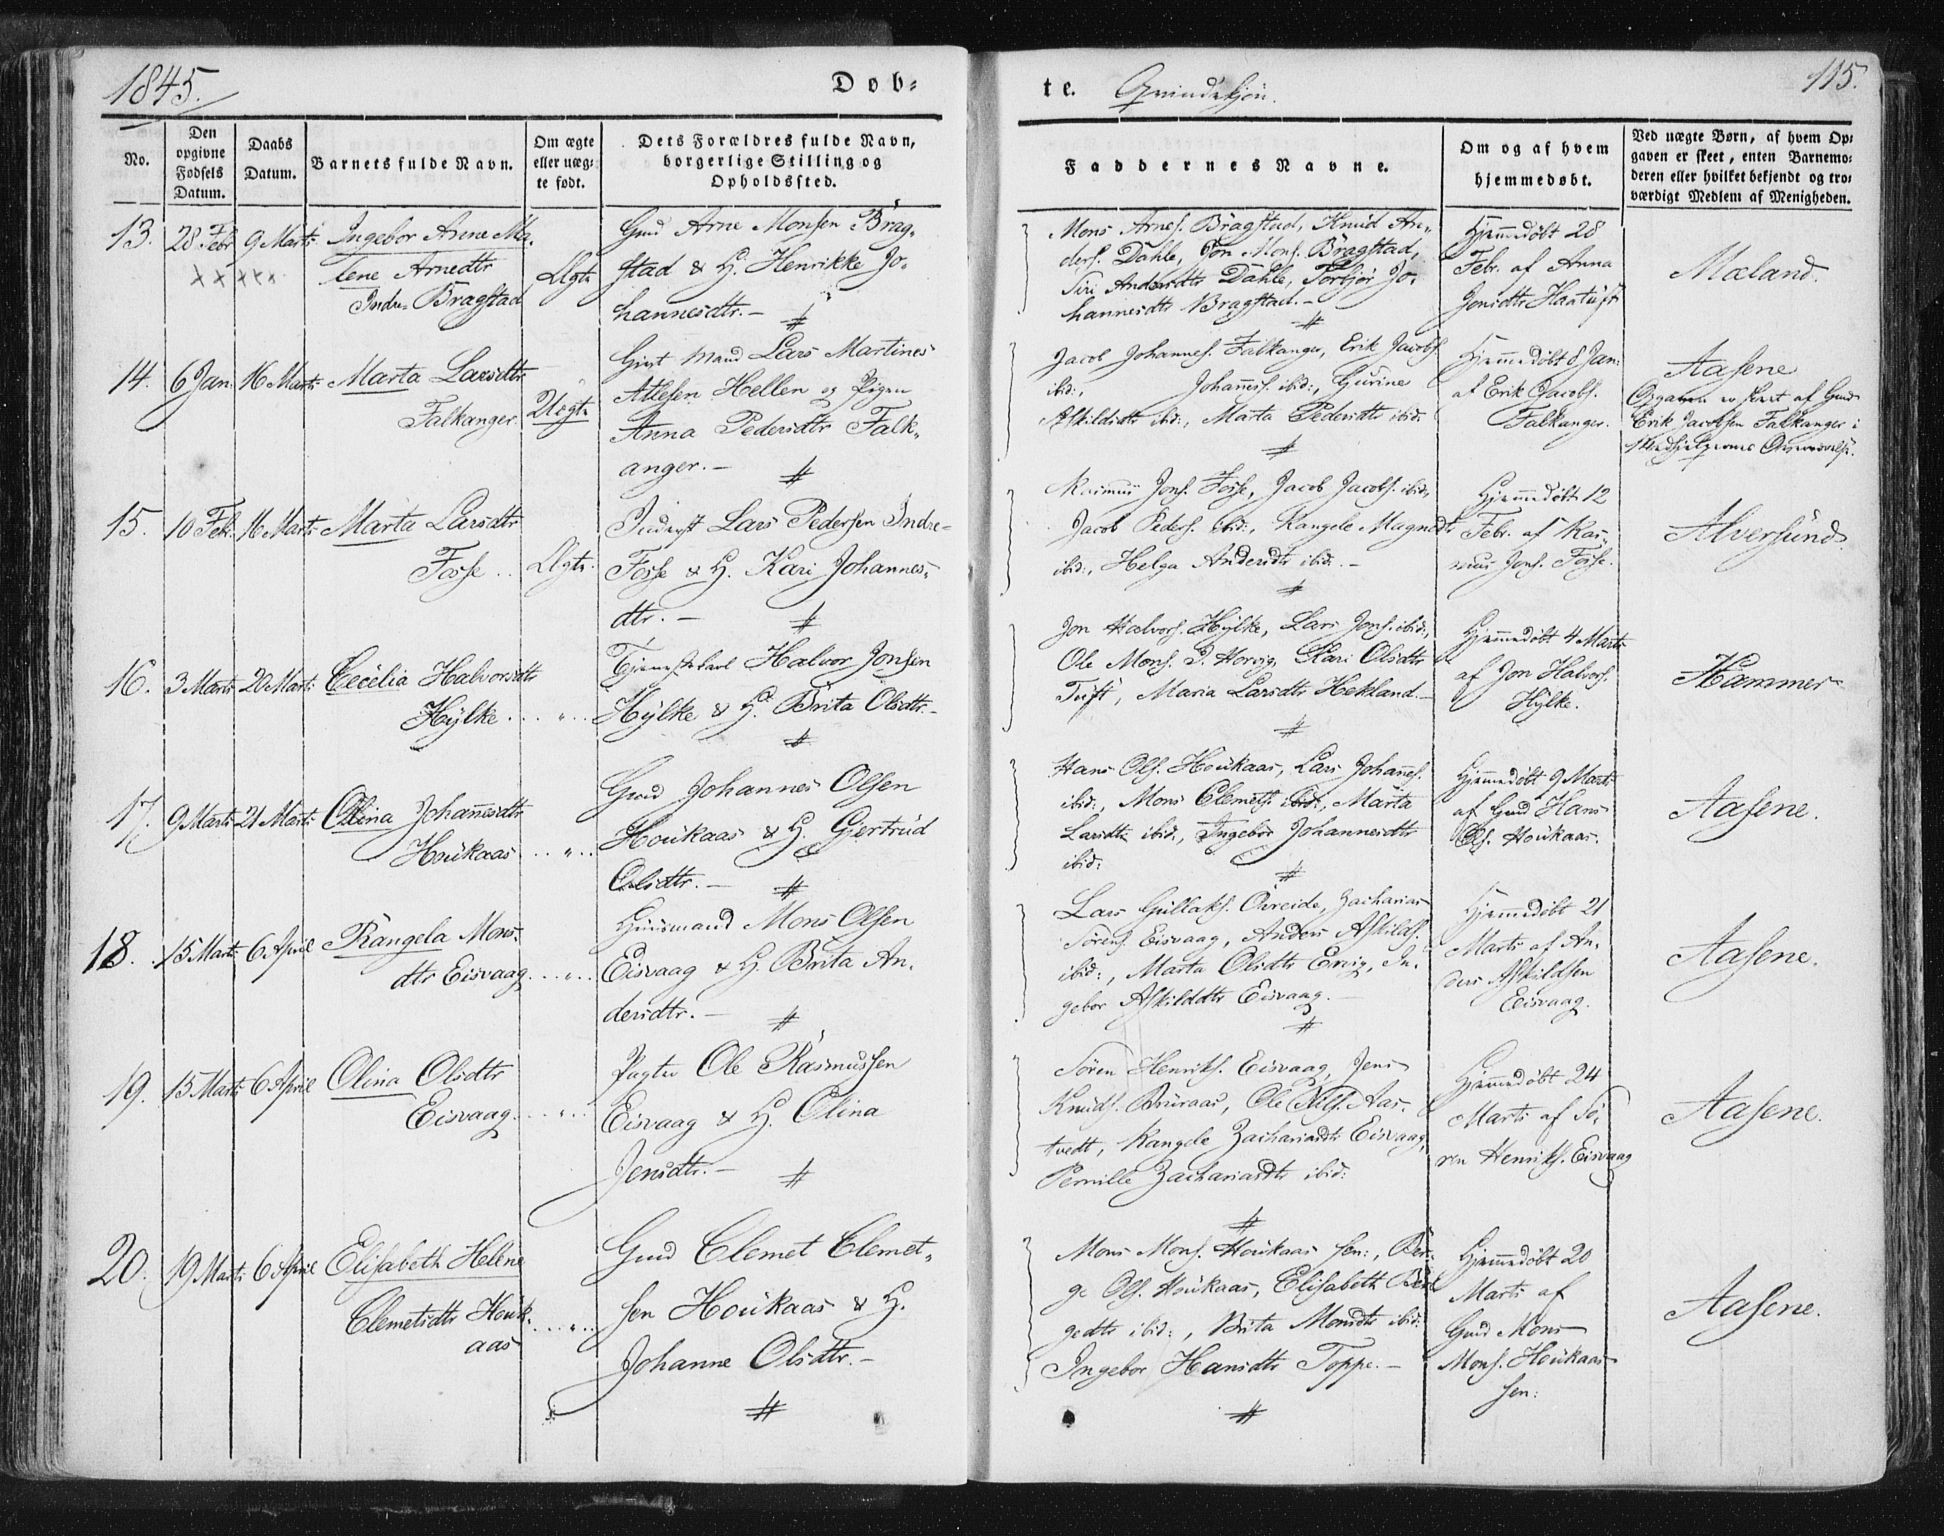 1845.
Døb=
te. Qvindekjøn.
115.
No.
Den
opgivne
Fødsels
Datum.
Daabs
Datum.
Barnets fulde Navn.
Om ægte
eller uæg=
te født.
Dets Forældres fulde Navn,
borgerlige Stilling og
Opholdssted.
Faddernes Navne.
Om og af hvem
hjemmedøbt.
Ved uægte Børn, af hvem Op=
gaven er skeet, enten Barnemo=
deren eller hvilket bekjendt og tro=
værdigt Medlem af Menigheden.
13. 28 Febr 9 Marts Ingebor Anne Ma=
lene Arnedtr
Indre Bragstad
Ægte
Gmd Arne Monsen Brag=
stad & H. Henrikke Jo=
hannesdtr. —
Mons Arnes. Bragstad, Knud An=
ders. Dahle, Jon Mons. Bragstad,
Siri Andersdtr Dahle, Torbjør Jo=
hannesdtr Bragstad. —
Hjemmedøbt 28
Febr. af Anna
Jonsdtr Haatuft
Mæland.
14. 6 Jan. 16 Marts Marta Larsdtr
Falkanger.
Uægte
Givt Mand Lars Martines
Atlesen Hellen og Pigen
Anna Pedersdtr Falk=
anger. —
Jacob Johannes. Falkanger, Erik Jacobs.
ibid:, Johannes. ibid:, Gurine
Askildsdtr ibid:, Marta Pedersdtr ibid.
Hjemmedøbt 8 Jan:
af Erik Jacobs.
Falkanger.
Aasene
Opgaven er skeet af Gmd
Erik Jacobsen Falkanger i
Medhjelpernes Overværelse.
15. 10 Feb. 16 Marts Marta Larsdtr
Fosse
Ægte.
Inderst Lars Pedersen Indre=
Fosse & H. Kari Johannes=
dtr. —
Rasmus Jons. Fosse, Jacob Jacobs. ibid,
Jacob Peders. ibid:, Rangele Magnedtr
ibid:, Helga Andersdtr ibid: —
Hjemmedøbt 12
Febr. af Ras=
mus Jons. Fosse.
Alversund.
16. 3 Marts 20 Marts Cecelia Halvorsdtr
Hylke
Tjenestekarl Halvor Jonsen
Hylke & H. Brita Olsdtr. —
Jon Halvors. Hylke, Lars Jons. ibid:,
Ole Mons. Horvig, Kari Olsdtr
Tuft, Maria Larsdtr Hekland. —
Hjemmedøbt 4 Marts
af Jon Halvors.
Hylke.
Hammer
17. 9 Marts 21 Marts Olina Johannesdtr
Houkaas
Gmd Johannes Olsen
Houkaas & H. Gjertrud
Olsdtr. —
Hans Ols. Houkaas, Lars Johannes.
ibid:, Mons Clemets. ibid:, Marta
Larsdtr ibid:, Ingebor Johannesdtr
ibid:
Hjemmedøbt 9 Marts
af Gmd Hans
Ols. Houkaas.
Aasene.
18. 15 Marts 6 April Rangela Mons=
dtr Eisvaag
Huusmand Mons Olsen
Eisvaag & H. Brita An=
dersdtr. —
Lars Gullaks. Øvreide, Zacharias
Sørens. Eisvaag, Anders Askilds.
ibid:, Marta Olsdtr Ervig, In=
gebor Askilddtr Eisvaag. —
Hjemmedøbt 21
Marts af An=
ders Askildsen
Eisvaag.
Aasene.
19. 15 Marts 6 April Olina Olsdtr
Eisvaag.
Pagter Ole Rasmussen
Eisvaag & H. Olina
Jensdtr. —
Søren Henriks. Eisvaag, Jens
Knuds. Bruraas, Ole Nils. Aas=
tvedt, Rangele Zachariasdtr Eisvaag,
Pernille Zachariasdtr ibid:
Hjemmedøbt 24
Marts af Sø=
ren Henriks. Eisvaag
Aasene.
20. 19 Marts 6 April Elisabeth Helene
Clemetsdtr Houk=
aas
Gmd Clemet Clemet=
sen Houkaas & H.
Johanne Olsdtr. —
Mons Mons. Houkaas sen:, Bør=
ge Ols. Houkaas, Elisabeth Bør=
gedtr ibid:, Brita Monsdtr ibid:
Ingebor Hansdtr Toppe. —
Hjemmedøbt 20
Marts af
Gmd Mons
Mons. Houkaas
sen:
Aasene.